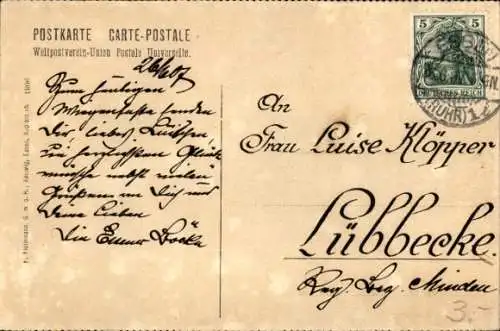 POSTKARTE CARTE-POSTALE
Weltpostverein-Union Postale Universelle.
26/6 07
Zum heutigen
Wiegenfeste senden
Dir, liebes Luischen
die herzlichsten Glück
wünsche nebst vielen
Grüßen an Dich und
deine Lieben
Die Emmer Böcke
An
Frau Luise Klöpper
Lübbecke.
Reg. Bez. Minden
5 5
DEUTSCHES REICH
(RUHR)
3.-